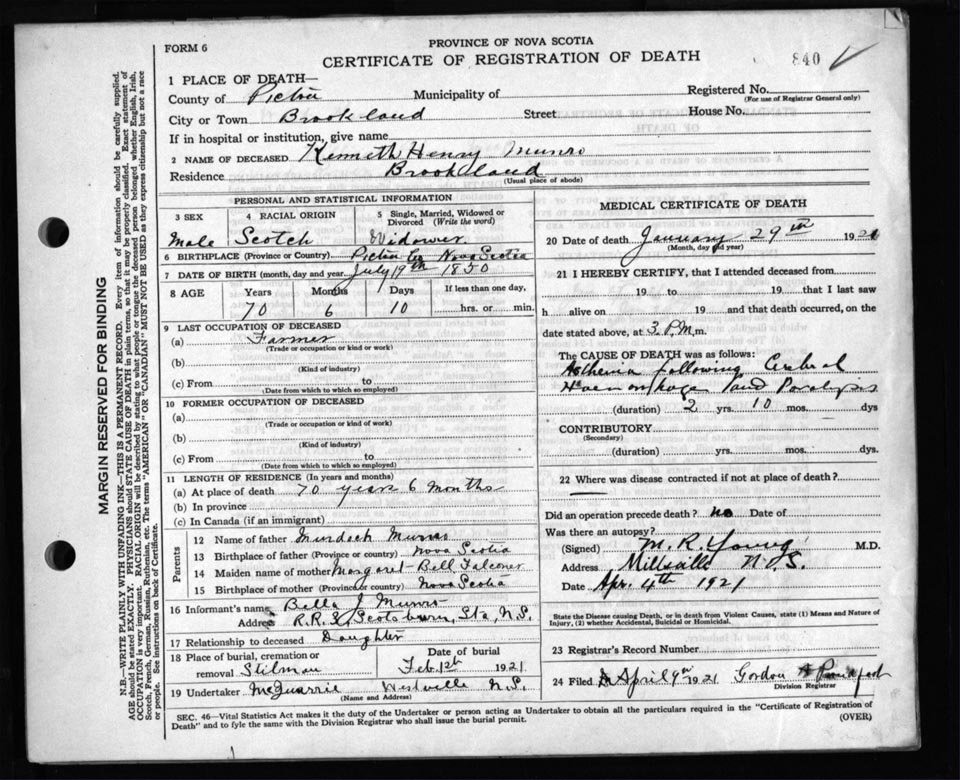 FORM 6
PROVINCE OF NOVA SCOTIA
CERTIFICATE OF REGISTRATION OF DEATH
840
1 PLACE OF DEATH—
County of Pictou Municipality of
Registered No.
(For use of Registrar General only)
City or Town Brookland Street House No.
If in hospital or institution, give name
2 NAME OF DECEASED Kenneth Henry Munro
Residence Brookland
(Usual place of abode)
PERSONAL AND STATISTICAL INFORMATION
3 SEX 4 RACIAL ORIGIN 5 Single, Married, Widowed or Divorced (Write the word)
Male Scotch Widower
6 BIRTHPLACE (Province or Country) Pictou Co Nova Scotia
7 DATE OF BIRTH (month, day and year) July 19th 1850
8 AGE Years Months Days If less than one day,
70 6 10 hrs. or min.
9 LAST OCCUPATION OF DECEASED
(a) Farmer
(Trade or occupation or kind of work)
(b)
(Kind of industry)
(c) From to
(Date from which to which so employed)
10 FORMER OCCUPATION OF DECEASED
(a)
(Trade or occupation or kind of work)
(b)
(Kind of industry)
(c) From to
(Date from which to which so employed)
11 LENGTH OF RESIDENCE (In years and months)
(a) At place of death 70 years 6 months
(b) In province
(c) In Canada (if an immigrant)
Parents
12 Name of father Murdoch Munro
13 Birthplace of father (Province or country) Nova Scotia
14 Maiden name of mother Margaret Bell Falconer
15 Birthplace of mother (Province or country) Nova Scotia
16 Informant's name Bella J Munro
Address R.R. Scotsburn, Sta, N.S.
17 Relationship to deceased Daughter
18 Place of burial, cremation or removal Stilman
Date of burial
Feb 1st 1921
19 Undertaker McQuarrie Westville N.S.
(Name and Address)
MEDICAL CERTIFICATE OF DEATH
20 Date of death January 29th 1921
(Month, day and year)
21 I HEREBY CERTIFY, that I attended deceased from
19 to 19 that I last saw
h alive on 19 and that death occurred, on the
date stated above, at 3 P.M. m.
The CAUSE OF DEATH was as follows:
Asthenia following Cerebral
Haemorrhage and Paralysis
(duration) 2 yrs. 10 mos. dys
CONTRIBUTORY
(Secondary)
(duration) yrs. mos. dys.
22 Where was disease contracted if not at place of death?
Did an operation precede death? no Date of
Was there an autopsy?
(Signed) M. R. Young M.D.
Address Millsville N.S.
Date Apr. 4th 1921
State the Disease causing Death, or in death from Violent Causes, state (1) Means and Nature of Injury, (2) whether Accidental, Suicidal or Homicidal.
23 Registrar's Record Number
24 Filed April 9th 1921 Gordon
Division Registrar
SEC. 46—Vital Statistics Act makes it the duty of the Undertaker or person acting as Undertaker to obtain all the particulars required in the "Certificate of Registration of
Death" and to fyle the same with the Division Registrar who shall issue the burial permit.
(OVER)
MARGIN RESERVED FOR BINDING
N.B.—WRITE PLAINLY WITH UNFADING INK—THIS IS A PERMANENT RECORD. Every item of information should be carefully supplied.
AGE should be stated EXACTLY. PHYSICIANS should STATE CAUSE OF DEATH in plain terms, so that it may be properly classified. Exact statement of
OCCUPATION is very important. RACIAL ORIGIN will be described by stating to what people or tongue the deceased person belonged whether English, Irish,
Scotch, French, German, Russian, Ruthenian, etc. The terms "AMERICAN" OR "CANADIAN" MUST NOT BE USED as they express citizenship but not a race
or people. See instructions on back of Certificate.